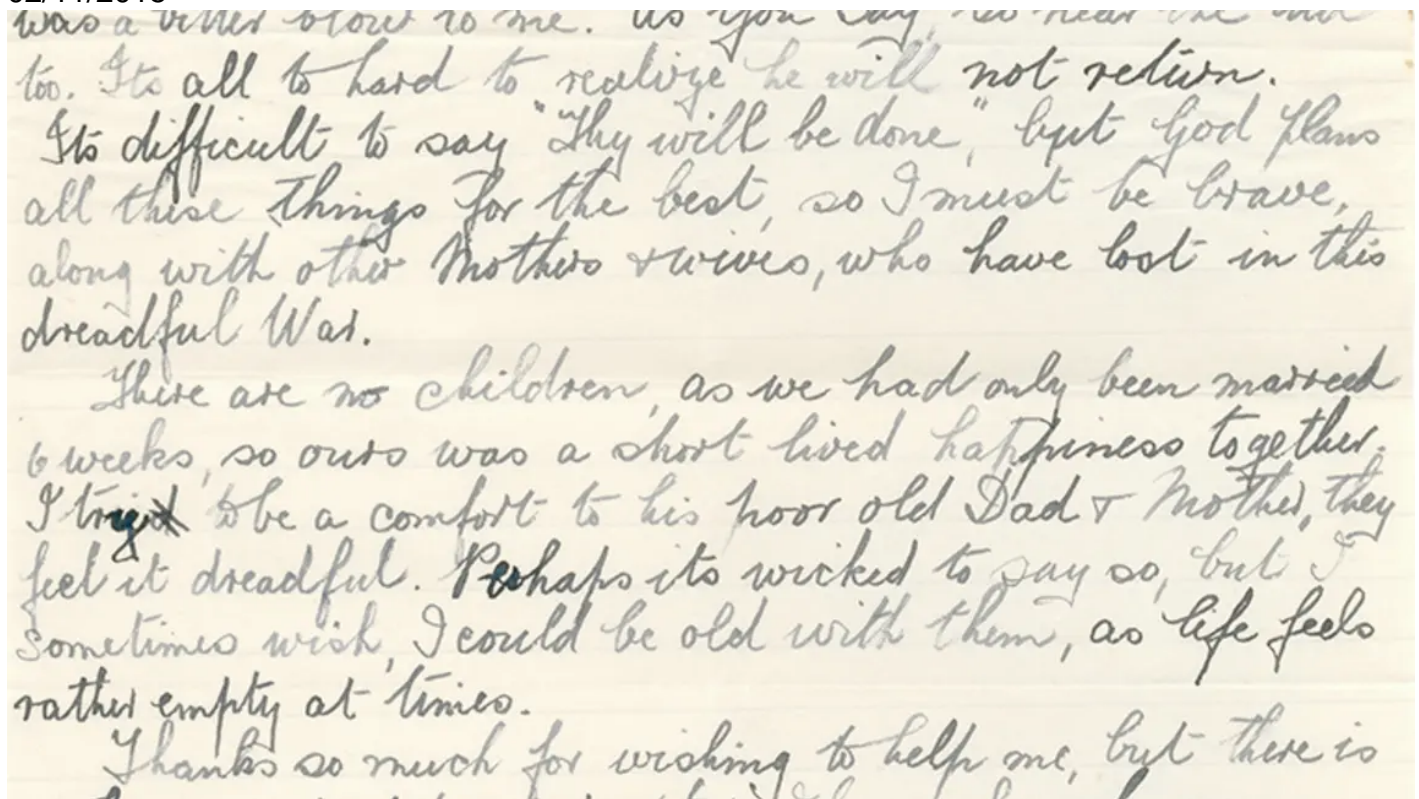 was a bitter blow to me. As you say, so near the end
too. Its all to hard to realize he will not return.
Its difficult to say "Thy will be done," but God plans
all these things for the best, so I must be brave,
along with other Mothers & wives, who have lost in this
dreadful War.
There are no children, as we had only been married
6 weeks, so ours was a short lived happiness together.
I try to be a comfort to his poor old Dad & Mother, they
feel it dreadful. Perhaps its wicked to say so, but I
sometimes wish, I could be old with them, as life feels
rather empty at times.
Thanks so much for wishing to help me, but there is